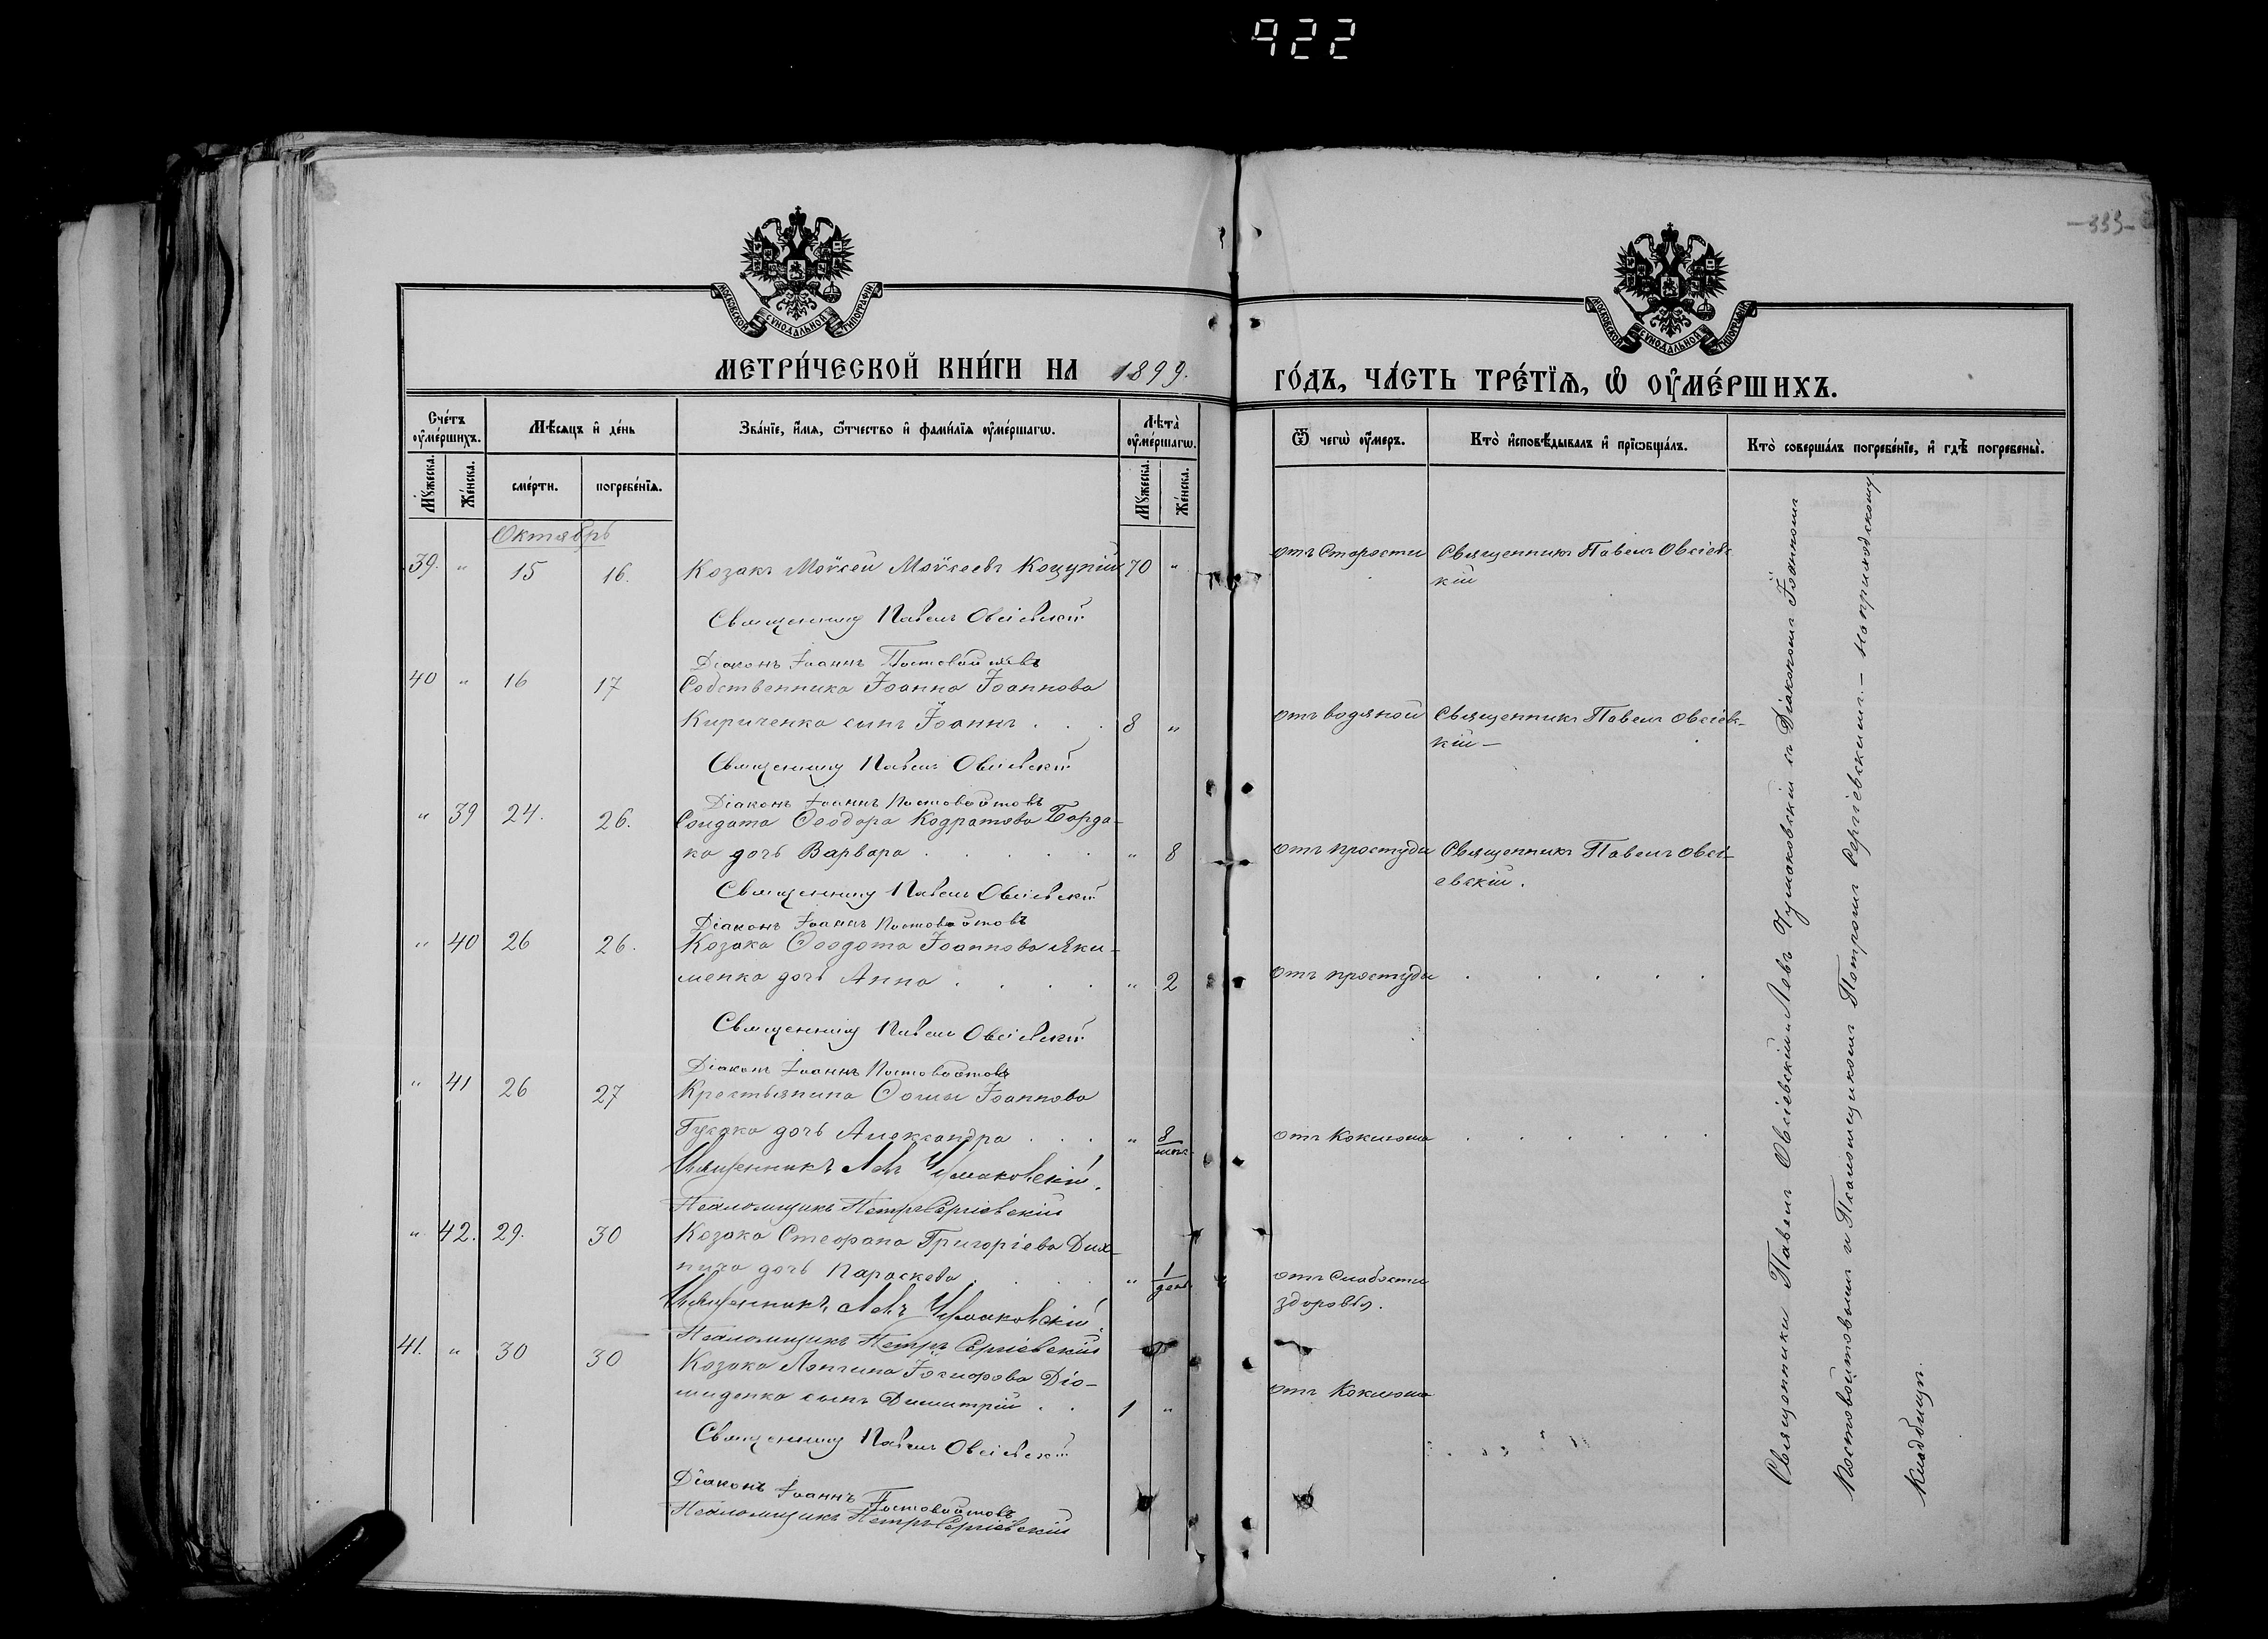 922
-333-
МОСКОВСКОЙ СУНОДАЛЬНОЙ ТИПОГРАФІИ
МОСКОВСКОЙ СУНОДАЛЬНОЙ ТИПОГРАФІИ
МЕТРИ́ЧЕСКОЙ КНИ́ГИ НА 1899.
ГО́ДЪ, ЧА́СТЬ ТРЕ́ТЇѦ, Ѡ҆ ОУ҆МЕ́РШИХЪ.
Сче́тъ оу҆ме́ршихъ.
Мѣ́сѧцъ и҆ де́нь
Зва́нїе, и҆́мѧ, ѻ҆́тчество и҆ фами́лїѧ оу҆ме́ршагѡ.
Лѣ́та оу҆ме́ршагѡ.
Ѿ чегѡ̀ оу҆́меръ.
Кто̀ и҆сповѣ́дывалъ и҆ прїѡбща́лъ.
Кто̀ соверша́лъ погребе́нїе, и҆ гдѣ̀ погребены̀.
Мꙋ́жеска.
Же́нска.
сме́рти.
погребе́нїѧ.
Мꙋ́жеска.
Же́нска.
Октябрь
39. " 15 16. Козакъ Моѵсей Моѵсеевъ Коцупій 70 " отъ Старости Священникъ Павелъ Овсіевскій
Священникъ Павелъ Овсіевскій
Діаконъ Іоаннъ Постовойтовъ
40 " 16 17 Собственника Іоанна Іоаннова
Кириченка сынъ Іоаннъ . . . 8 " отъ водяной Священникъ Павелъ Овсіевскій —
Священникъ Павелъ Овсіевскій
Діаконъ Іоаннъ Постовойтовъ
" 39 24. 26. Солдата Ѳеодора Кодратова Барда-
ка дочь Варвара . . . . . " 8 отъ простуды Священникъ Павелъ Овсі-
евскій.
Священникъ Павелъ Овсіевскій
Діаконъ Іоаннъ Постовойтовъ
" 40 26 26. Козака Ѳеодота Іоаннова Яки-
менка дочь Анна . . . . " 2 отъ простуды . . . . .
Священникъ Павелъ Овсіевскій
Діаконъ Іоаннъ Постовойтовъ
" 41 26 27 Крестьянина Ѳомы Іоаннова
Гусака дочь Александра . . . " 8 мѣс. отъ Коклюша . . . . . .
Священникъ Левъ Чумаковскій.
Псаломщикъ Петръ Сергіевскій
" 42. 29. 30 Козака Стефана Григоріева Дих-
нича дочь Параскева . . . . " 1 день отъ Слабости
здоровья.
Священникъ Левъ Чумаковскій.
Псаломщикъ Петръ Сергіевскій
41. " 30 30 Козака Лонгина Діо-
миденка сынъ Димитрій . . 1 " отъ Коклюша
Священникъ Павелъ Овсіевскій
Діаконъ Іоаннъ Постовойтовъ
Псаломщикъ Петръ Сергіевскій
Священники Павелъ Овсіевскій и Левъ Чумаковскій съ Діакономъ Іоанномъ
Постовойтовымъ и Псаломщикомъ Петромъ Сергіевскимъ. — На приходскому
Кладбищу.